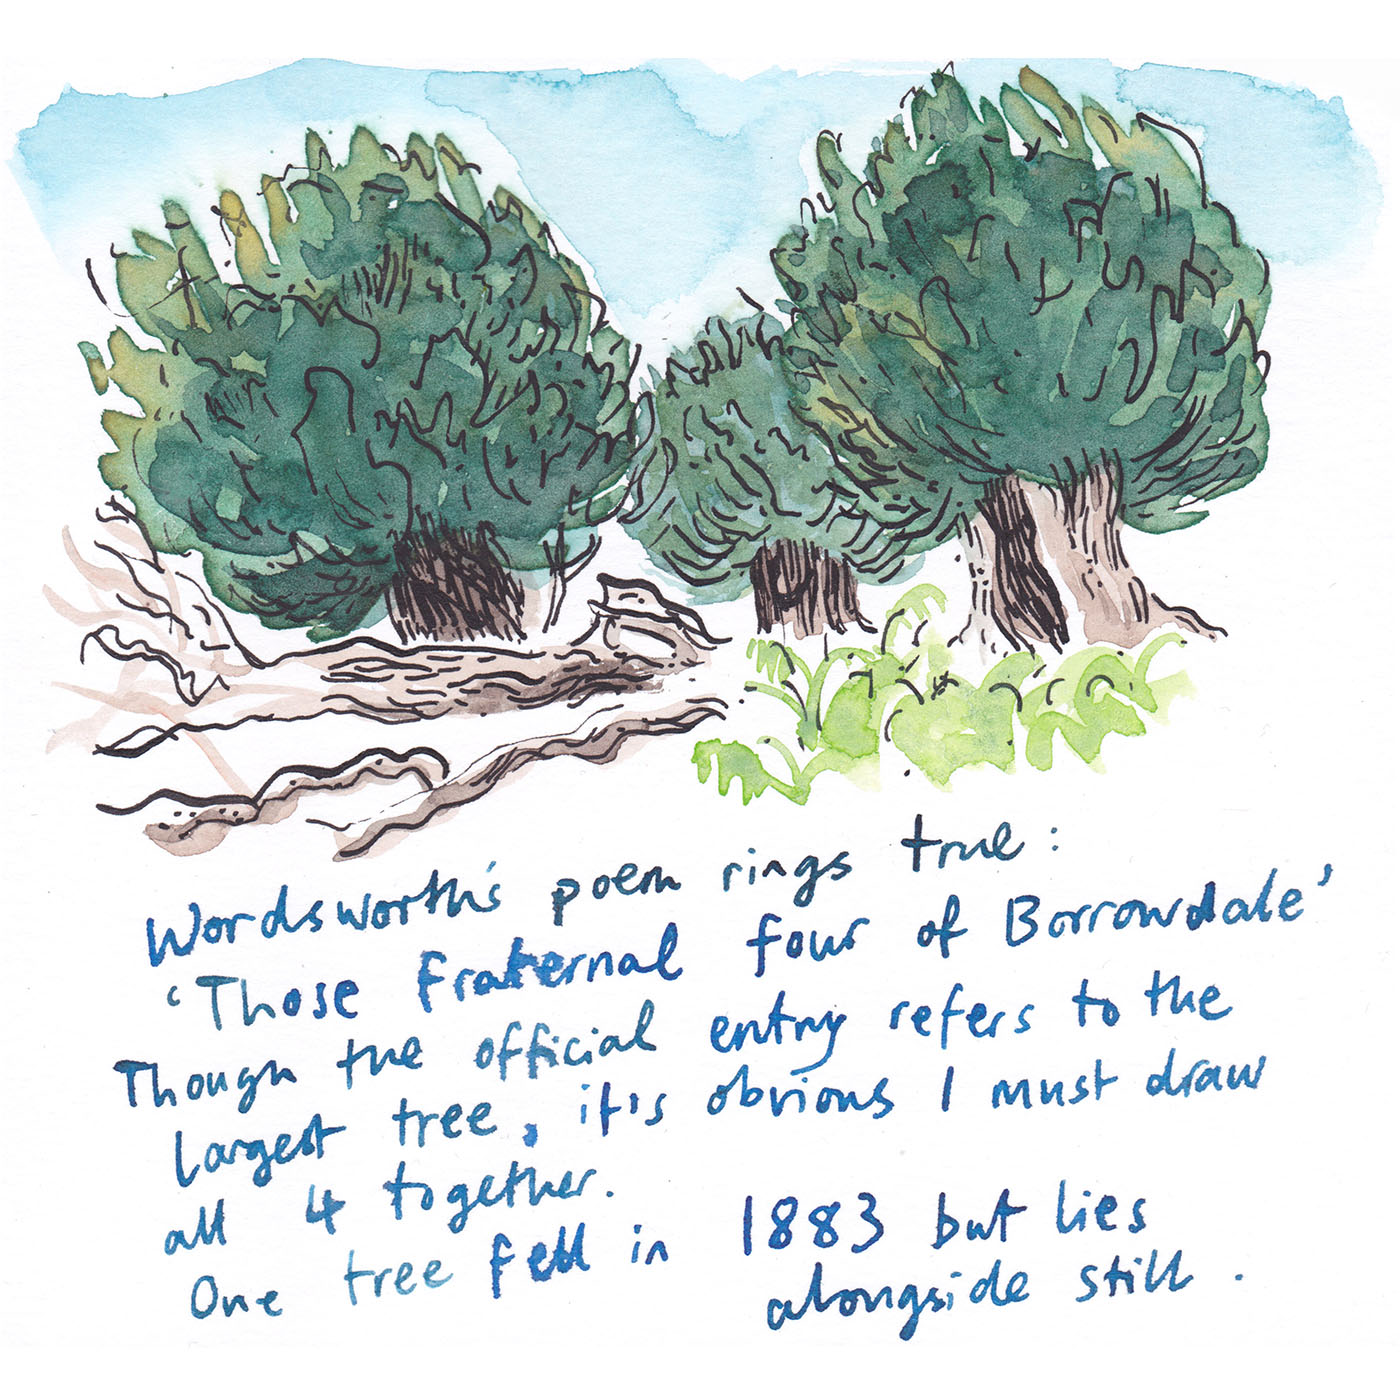 Wordsworth's poem rings true:
'Those Fraternal four of Borrowdale'
Though the official entry refers to the
largest tree, it's obvious I must draw
all 4 together.
One tree fell in 1883 but lies
alongside still.